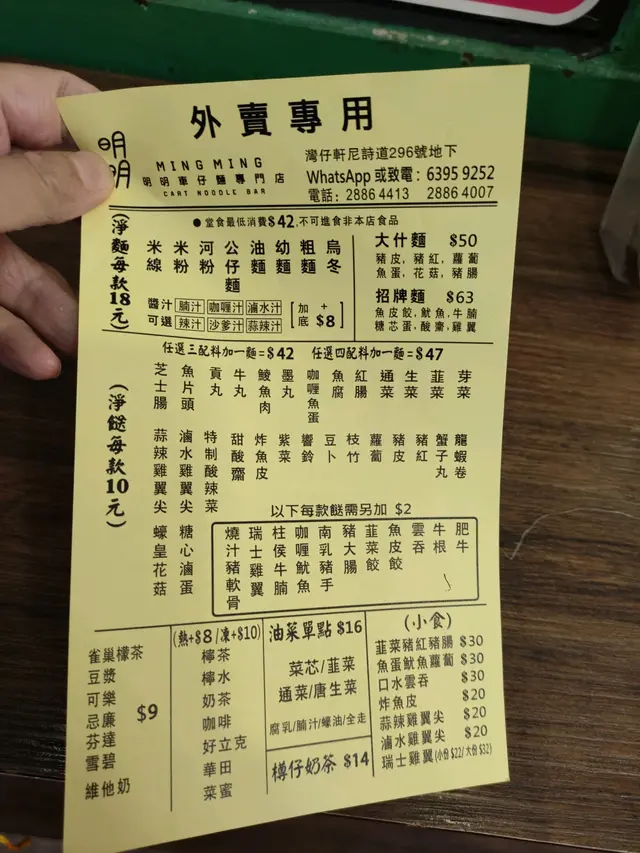 外賣專用
明明
MING MING
明明車仔麵專門店
CART NOODLE BAR
灣仔軒尼詩道296號地下
WhatsApp 或致電：6395 9252
電話：2886 4413　2886 4007
●堂食最低消費$42,不可進食非本店食品
(淨麵每款18元)
米線
米粉
河粉
公仔麵
油麵
幼麵
粗麵
烏冬
醬汁可選
腩汁 咖喱汁 滷水汁
辣汁 沙爹汁 蒜辣汁
[加底+$8]
大什麵 $50
豬皮,豬紅,蘿蔔
魚蛋,花菇,豬腸
招牌麵 $63
魚皮餃,魷魚,牛腩
糖芯蛋,酸齋,雞翼
任選三配料加一麵=$42 任選四配料加一麵=$47
(淨餸每款10元)
芝士腸
魚片頭
貢丸
牛丸
鯪魚肉
墨丸
咖喱魚蛋
魚腐
紅腸
通菜
生菜
韮菜
芽菜
蒜辣雞翼尖
滷水雞翼尖
特制酸辣菜
甜酸齋
炸魚皮
紫菜
響鈴
豆卜
枝竹
蘿蔔
豬皮
豬紅
蟹子丸
龍蝦卷
蠔皇花菇
糖心滷蛋
以下每款餸需另加 $2
燒汁豬軟骨
瑞士雞翼
柱侯牛腩
咖喱魷魚
南乳豬手
豬大腸
韮菜餃
魚皮餃
雲吞
牛根
肥牛
雀巢檬茶
豆漿
可樂
忌廉
芬達
雪碧
維他奶
$9
(熱+$8/凍+$10)
檸茶
檸水
奶茶
咖啡
好立克
華田
菜蜜
油菜單點 $16
菜芯/韮菜
通菜/唐生菜
腐乳/腩汁/蠔油/全走
樽仔奶茶 $14
(小食)
韮菜豬紅豬腸 $30
魚蛋魷魚蘿蔔 $30
口水雲吞 $30
炸魚皮 $20
蒜辣雞翼尖 $20
滷水雞翼尖 $20
瑞士雞翼(小份$22/大份$32)